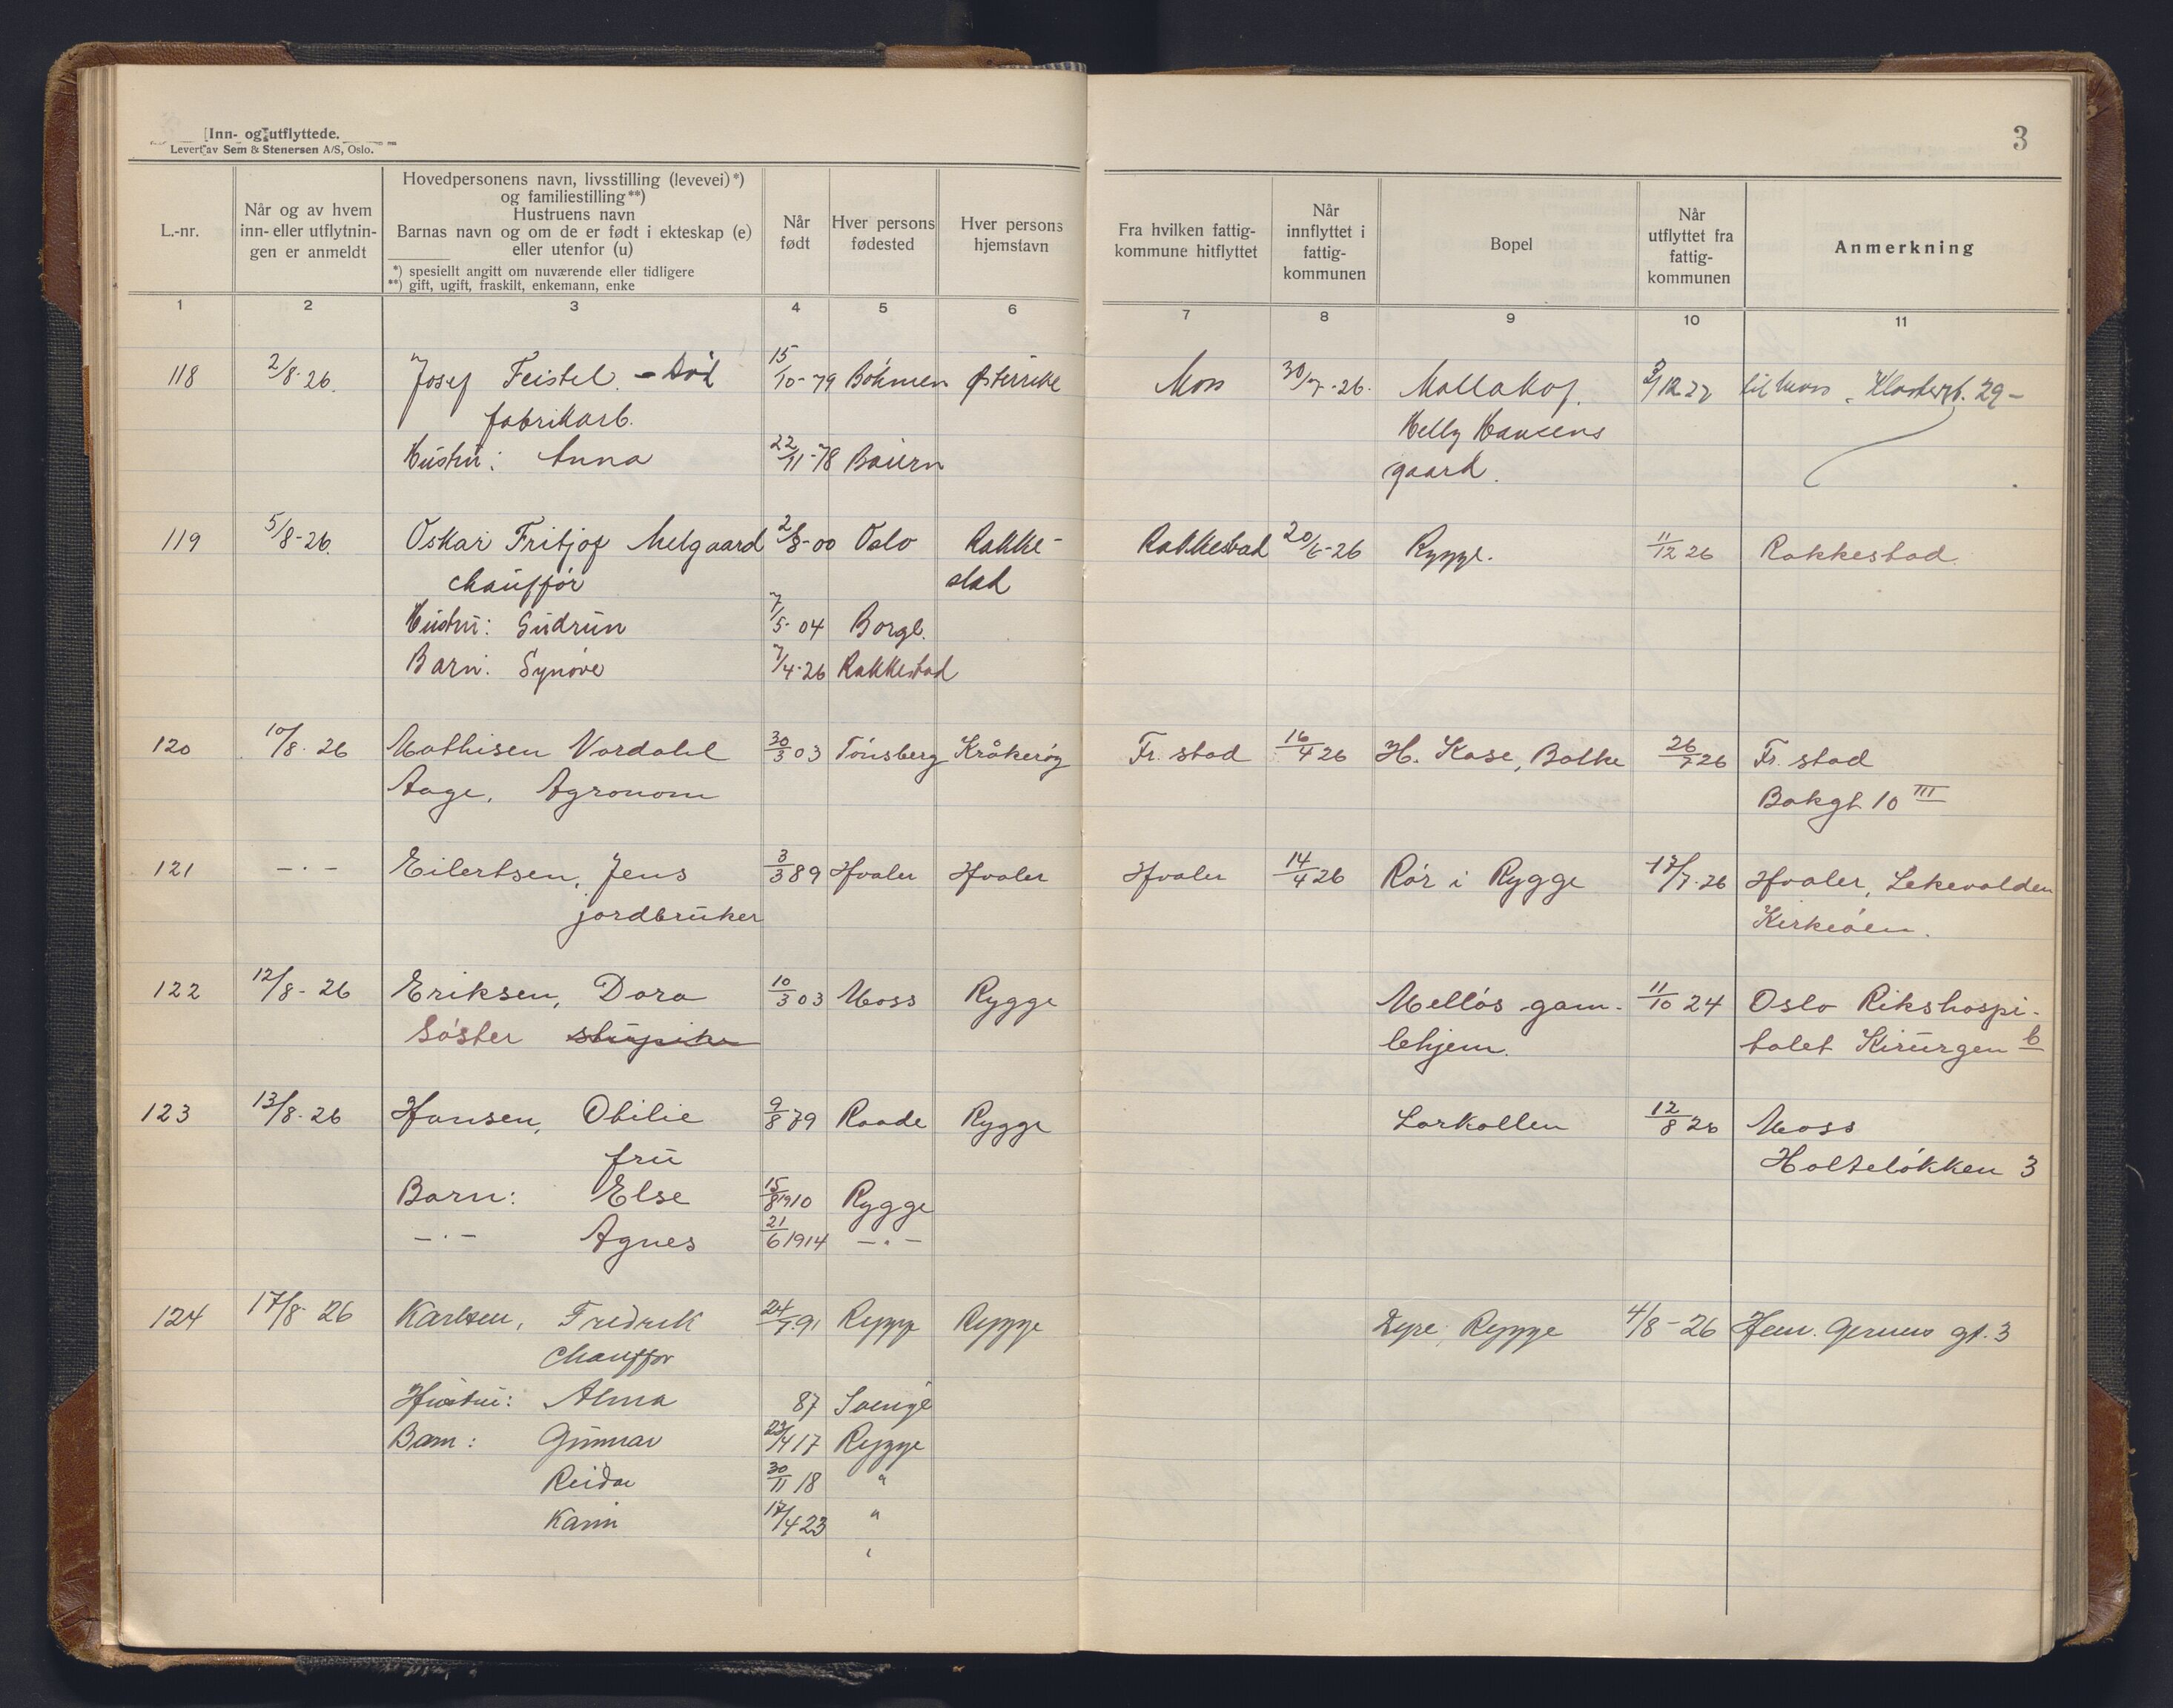 Inn- og utflyttede.
Levert av Sem & Stenersen A/S, Oslo.
3
L.-nr.
Når og av hvem inn- eller utflytnin- gen er anmeldt
Hovedpersonens navn, livsstilling (levevei)*)
og familiestilling**)
Hustruens navn
Barnas navn og om de er født i ekteskap (e)
eller utenfor (u)
*) spesiellt angitt om nuværende eller tidligere
**) gift, ugift, fraskilt, enkemann, enke
Når født
Hver persons fødested
Hver persons hjemstavn
Fra hvilken fattig- kommune hitflyttet
Når innflyttet i fattig- kommunen
Bopel
Når utflyttet fra fattig- kommunen
Anmerkning
1 2 3 4 5 6 7 8 9 10 11
118 2/8-26. Josef Feistel. - Död 15/10-79 Böhmen Østerrike Moss 30/7-26. Mallakof. 3/12 27 til Moss, Klostergt. 29-
fabrikarb. Helly Hansens
Hustru: Anna 22/11-78 Baiern gaard.
119 5/8-26. Oskar Fritjof Melgaard 2/8-00 Oslo Rakke- Rakkestad 20/6-26 Rygge. 11/12 26 Rakkestad.
chauffør stad
Hustru: Gudrun 7/5-04 Borge.
Barn: Synøve 7/4-26 Rakkestad
120 10/8-26 Mathisen Vardahl 30/3 03 Tönsberg Kråkerøy Fr. stad 16/4 26 H. Kase, Bolke 26/7 26 Fr. stad
Aage, Agronom Bakgt. 10 III
121 -·- Eilertsen, Jens 3/3 89 Hvaler Hvaler Hvaler 14/4 26 Rör i Rygge 17/7-26 Hvaler, Lekevolden
jordbruker Kirkeöen.
122 12/8-26 Eriksen, Dora 10/3 03 Moss Rygge Mellös gam- 11/10 24 Oslo Rikshospi-
Söster stupike lehjem. talet Kirurgen b
123 13/8-26 Hansen, Otilie 9/8 79 Raade Rygge Larkollen 12/8 26 Moss
fru Holtelökken 3
Barn: Else 15/8 1910 Rygge
-·- Agnes 21/6 1914 -·-
124 17/8-26 Karlsen, Fredrik 24/7 91 Rygge Rygge Dyre, Rygge 4/8-26 Hen. Gerners gt. 3
Chauffør
Hustru: Alma 87 Sverige
Barn: Gunnar 23/4 17 Rygge
Reidar 30/11 18 "
Karin 17/4 23 "